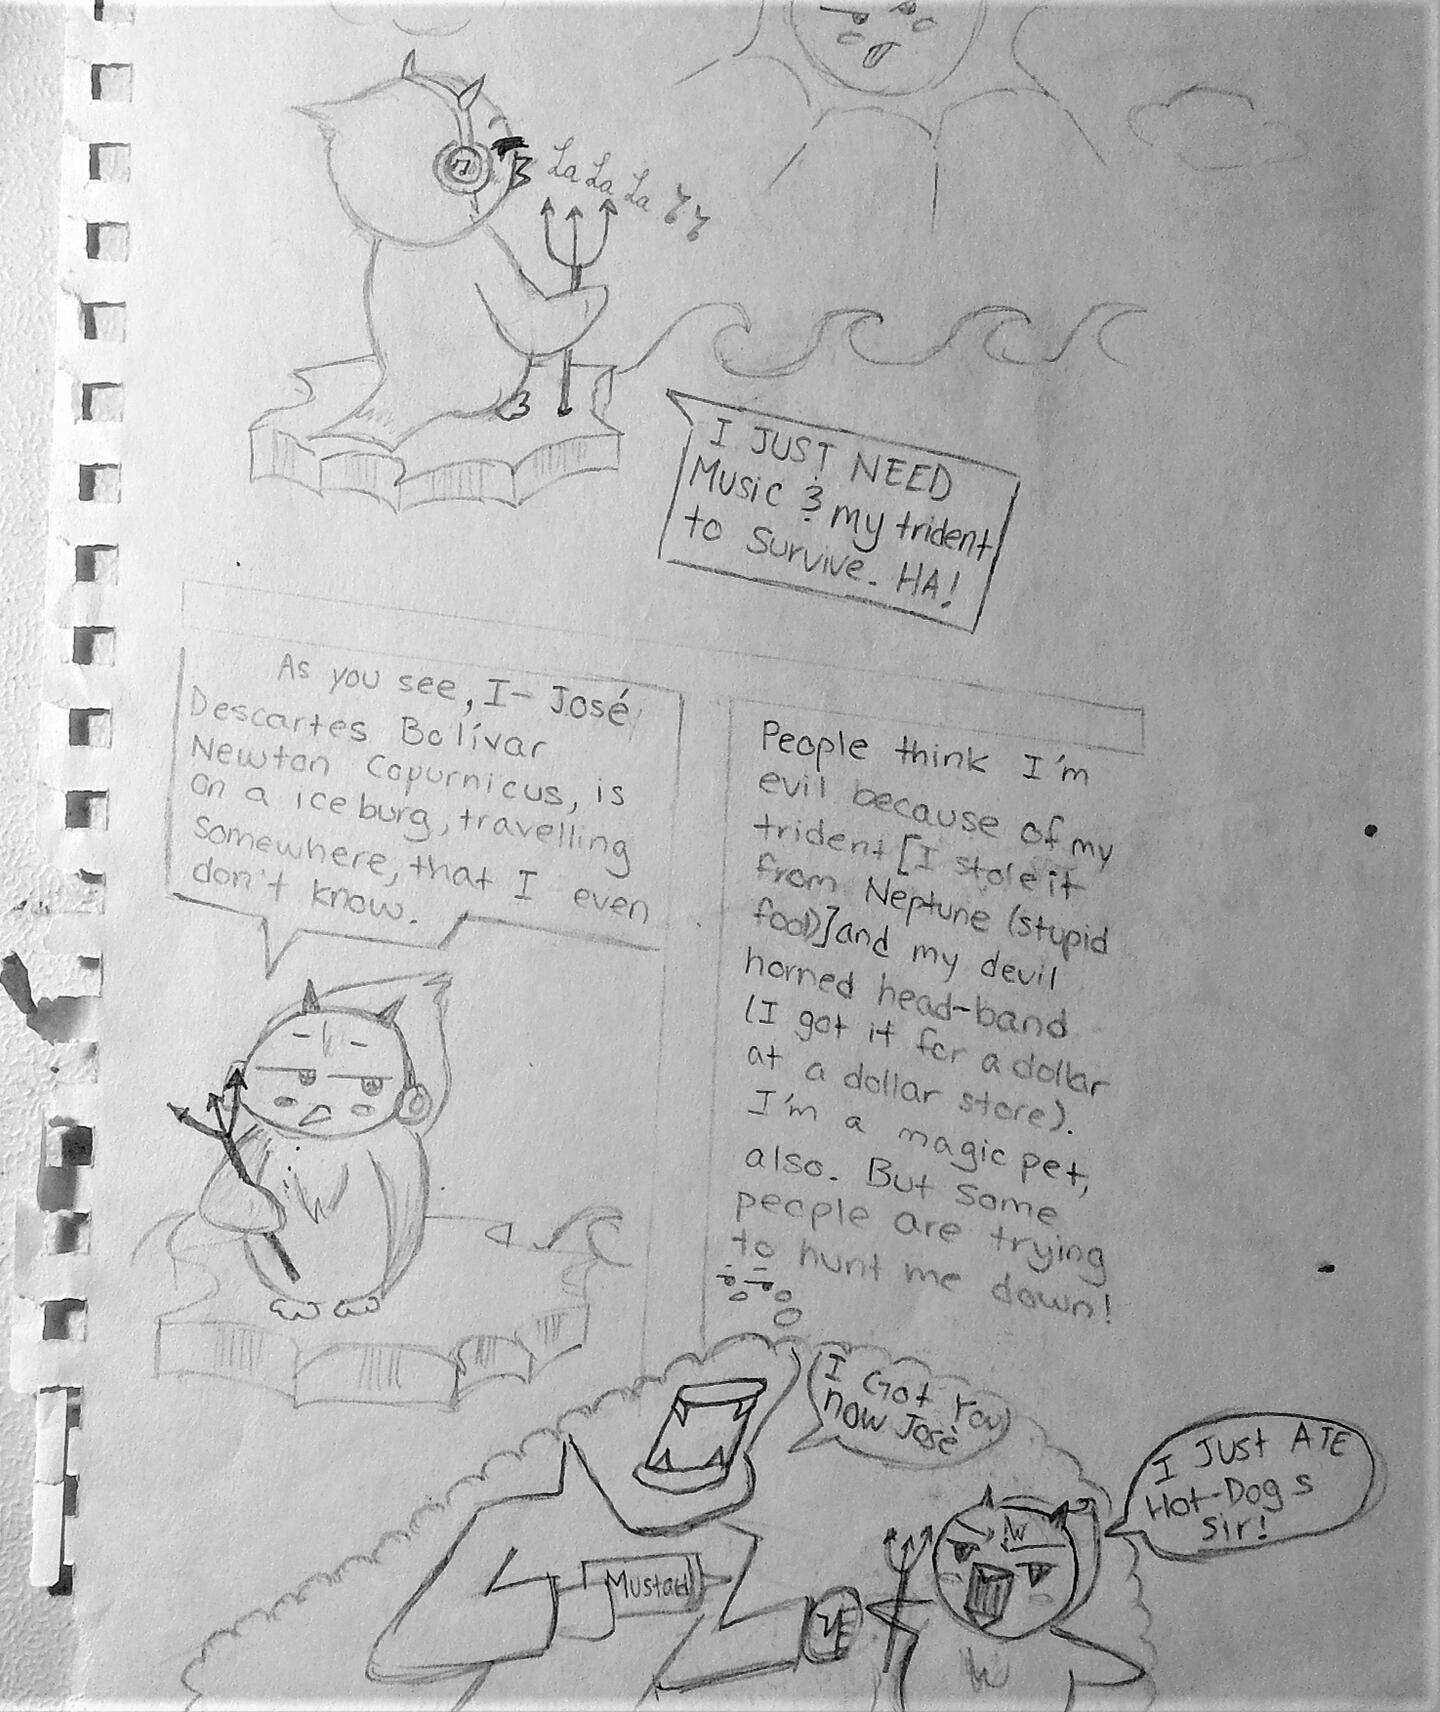 La La La
I JUST NEED
Music & my trident
to Survive. HA!
As you see, I- José
Descartes Bolívar
Newton Copurnicus, is
on a iceburg, travelling
somewhere, that I even
don't know.
People think I'm
evil because of my
trident [I stole it
from Neptune (stupid
fool)] and my devil
horned head-band
(I got it for a dollar
at a dollar store).
I'm a magic pet,
also. But some
people are trying
to hunt me down!
I Got You
now José
I JUST ATE
Hot-Dogs
Sir!
Mustad